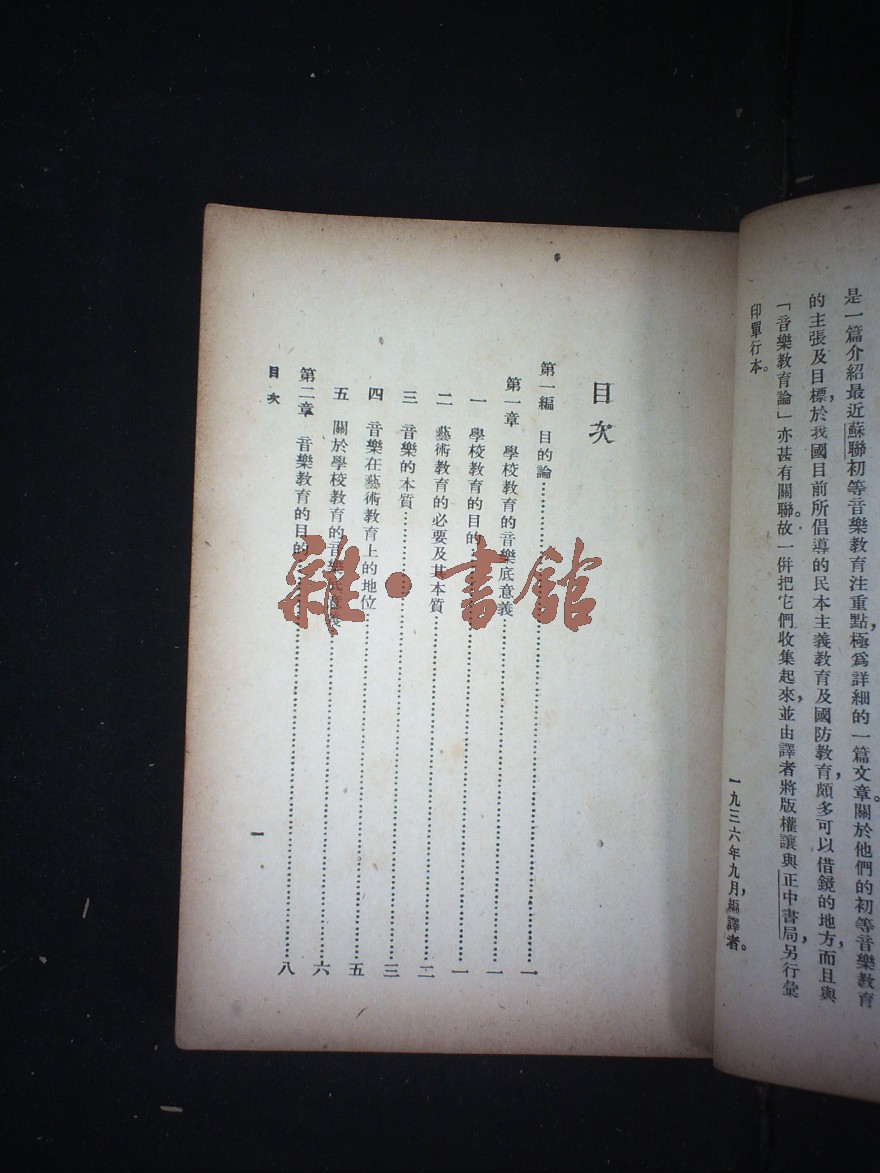 是一篇介紹最近蘇聯初等音樂教育注重點，極爲詳細的一篇文章。關於他們的初等音樂教育
的主張及目標，於我國目前所倡導的民本主義教育及國防教育，頗多可以借鏡的地方，而且與
「音樂教育論」亦甚有關聯。故一併把它們收集起來，並由譯者將版權讓與正中書局，另行彙
印單行本。
一九三六年九月，編譯者。
目次
第一編 目的論……一
第一章 學校教育的音樂底意義……一
一 學校教育的目的……一
二 藝術教育的必要及其本質……二
三 音樂的本質……三
四 音樂在藝術教育上的地位……五
五 關於學校教育的音樂底意義……六
第二章 音樂教育的目的……八
目次
一
雜·書館